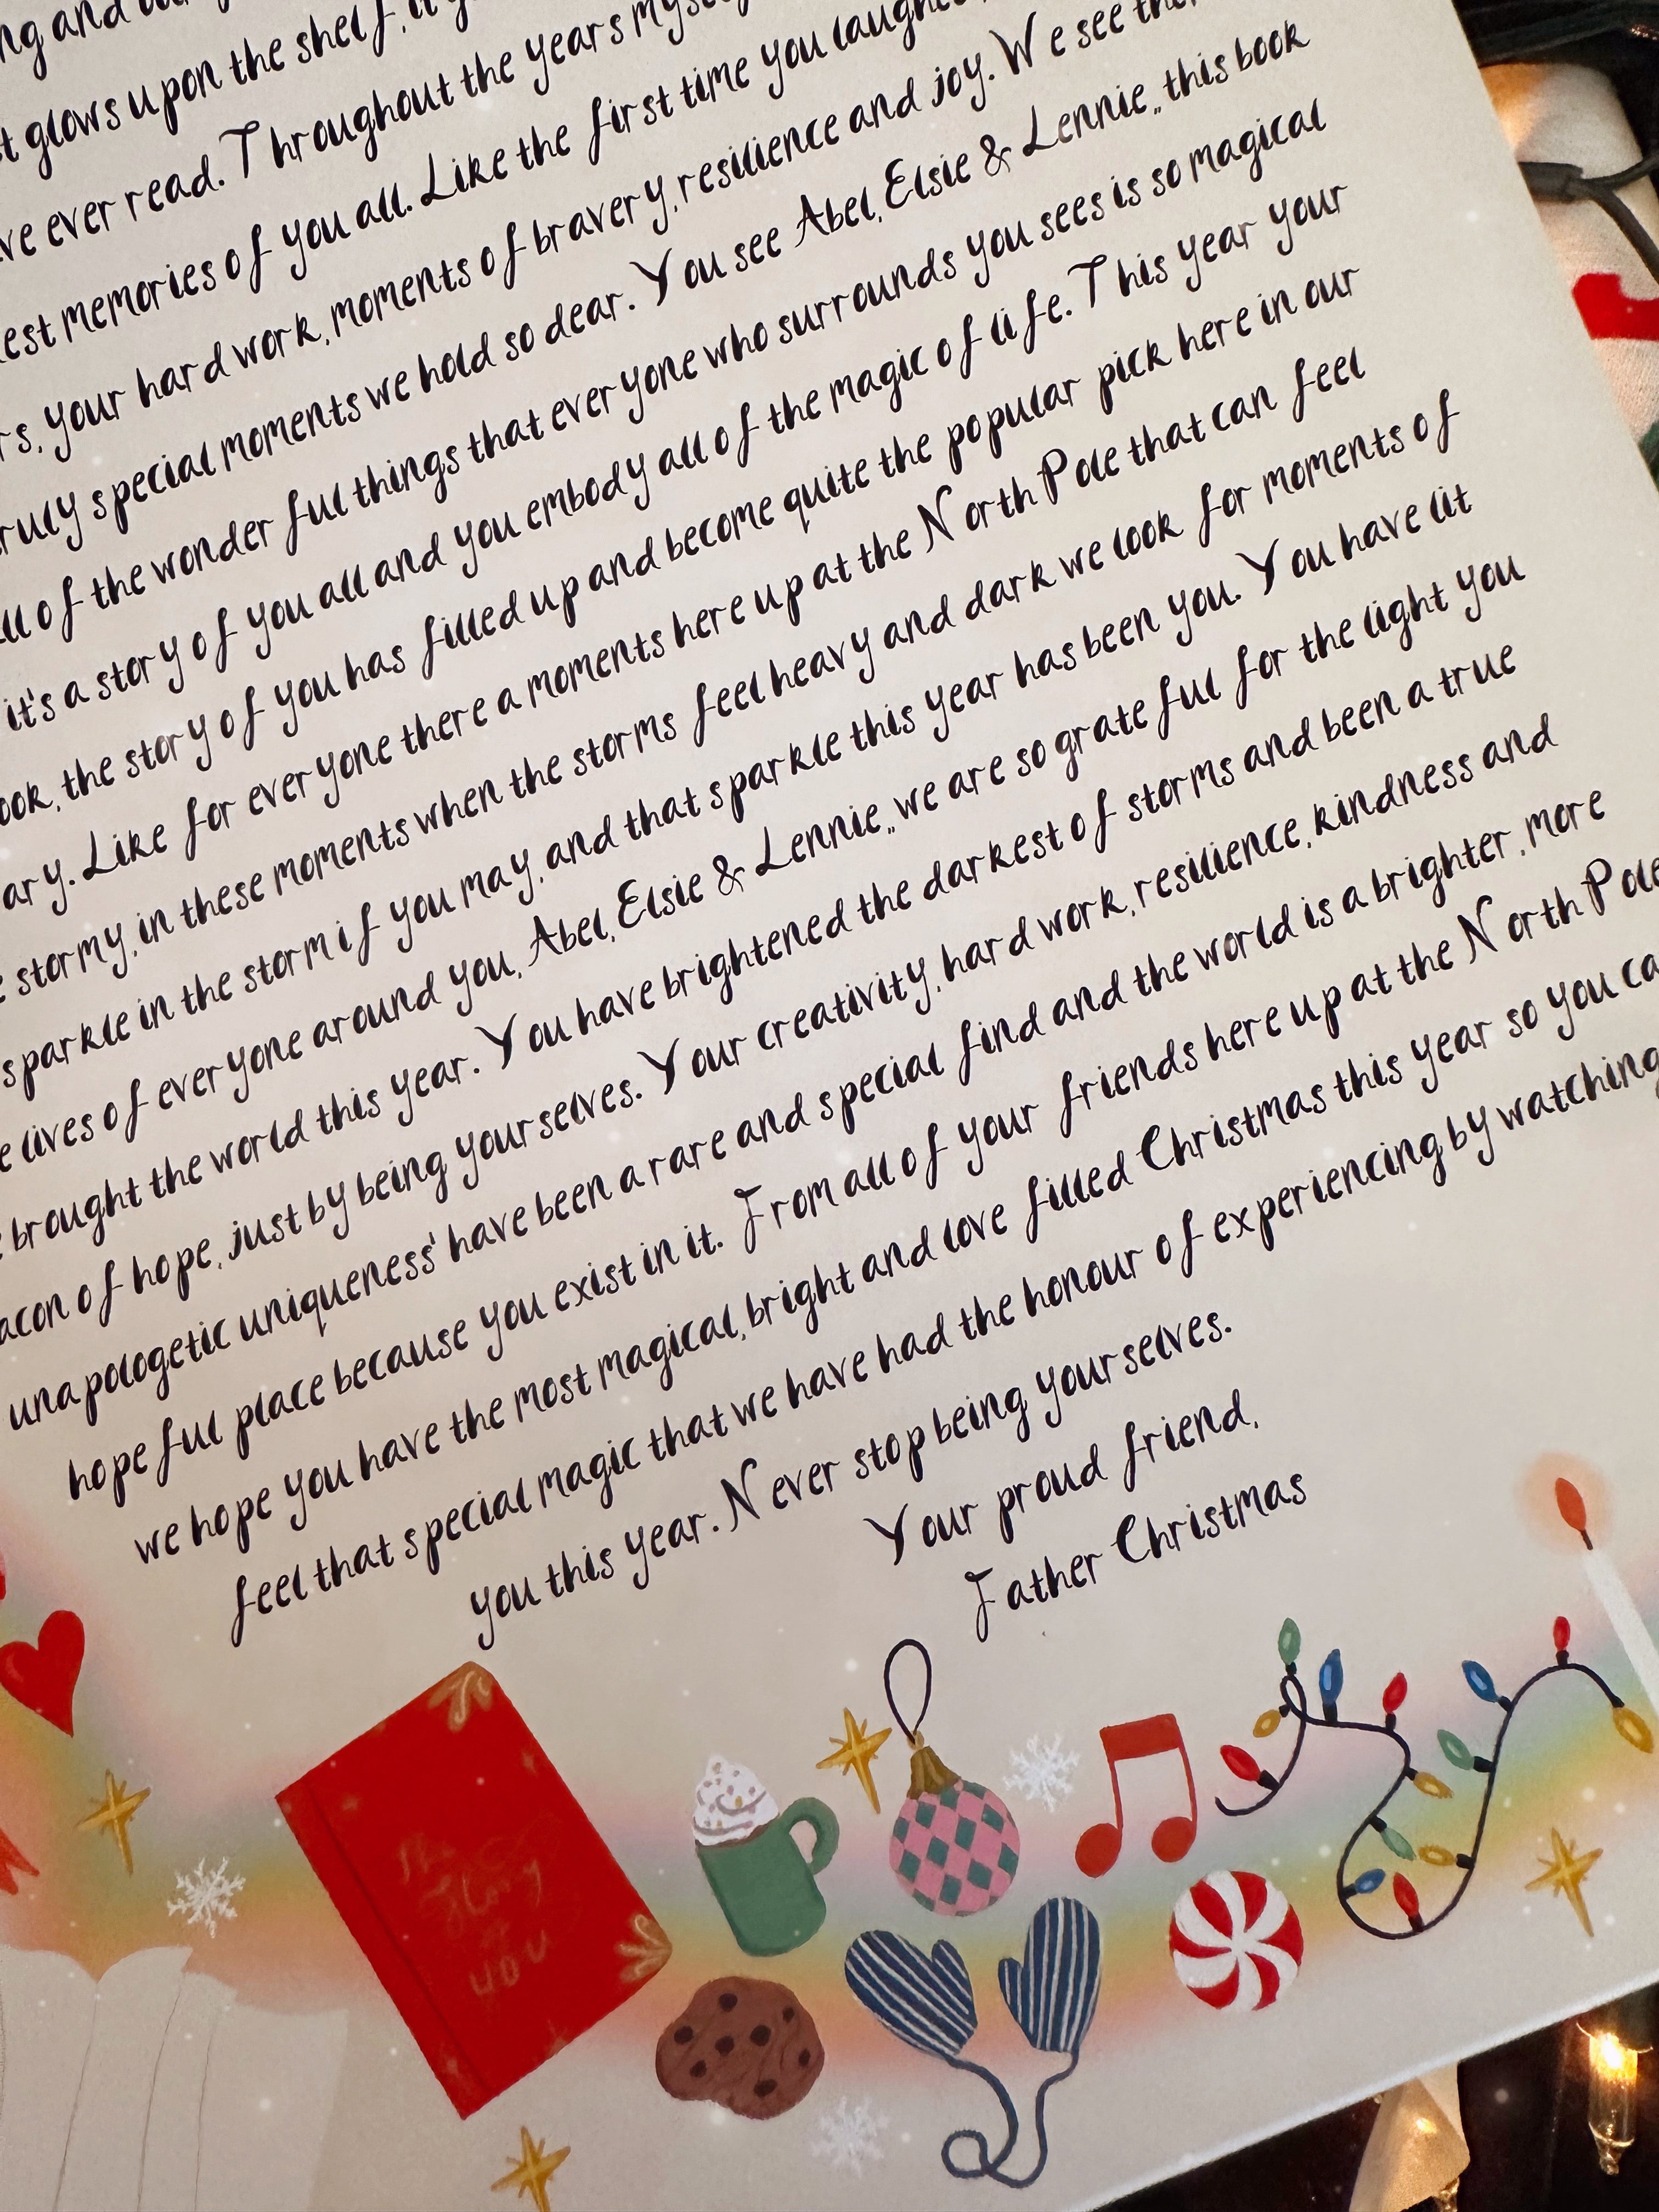 and
glows upon the shelf, it
ever read. Throughout the years
memories of you all. Like the first time you
your hard work, moments of bravery, resilience and joy. We see
special moments we hold so dear. You see Abel, Elsie & Lennie,, this book
of the wonderful things that everyone who surrounds you sees is so magical
it's a story of you all and you embody all of the magic of life. This year your
the story of you has filled up and become quite the popular pick here in our
Like for everyone there a moments here up at the North Pole that can feel
stormy, in these moments when the storms feel heavy and dark we look for moments of
sparkle in the storm if you may, and that sparkle this year has been you. You have lit
lives of everyone around you, Abel, Elsie & Lennie,, we are so grateful for the light you
brought the world this year. You have brightened the darkest of storms and been a true
of hope, just by being yourselves. Your creativity, hard work, resilience, kindness and
unapologetic uniqueness' have been a rare and special find and the world is a brighter, more
hopeful place because you exist in it. From all of your friends here up at the North Pole
we hope you have the most magical, bright and love filled Christmas this year so you
feel that special magic that we have had the honour of experiencing by watching
you this year. Never stop being yourselves.
Your proud friend,
Father Christmas
The
Story
of
YOU